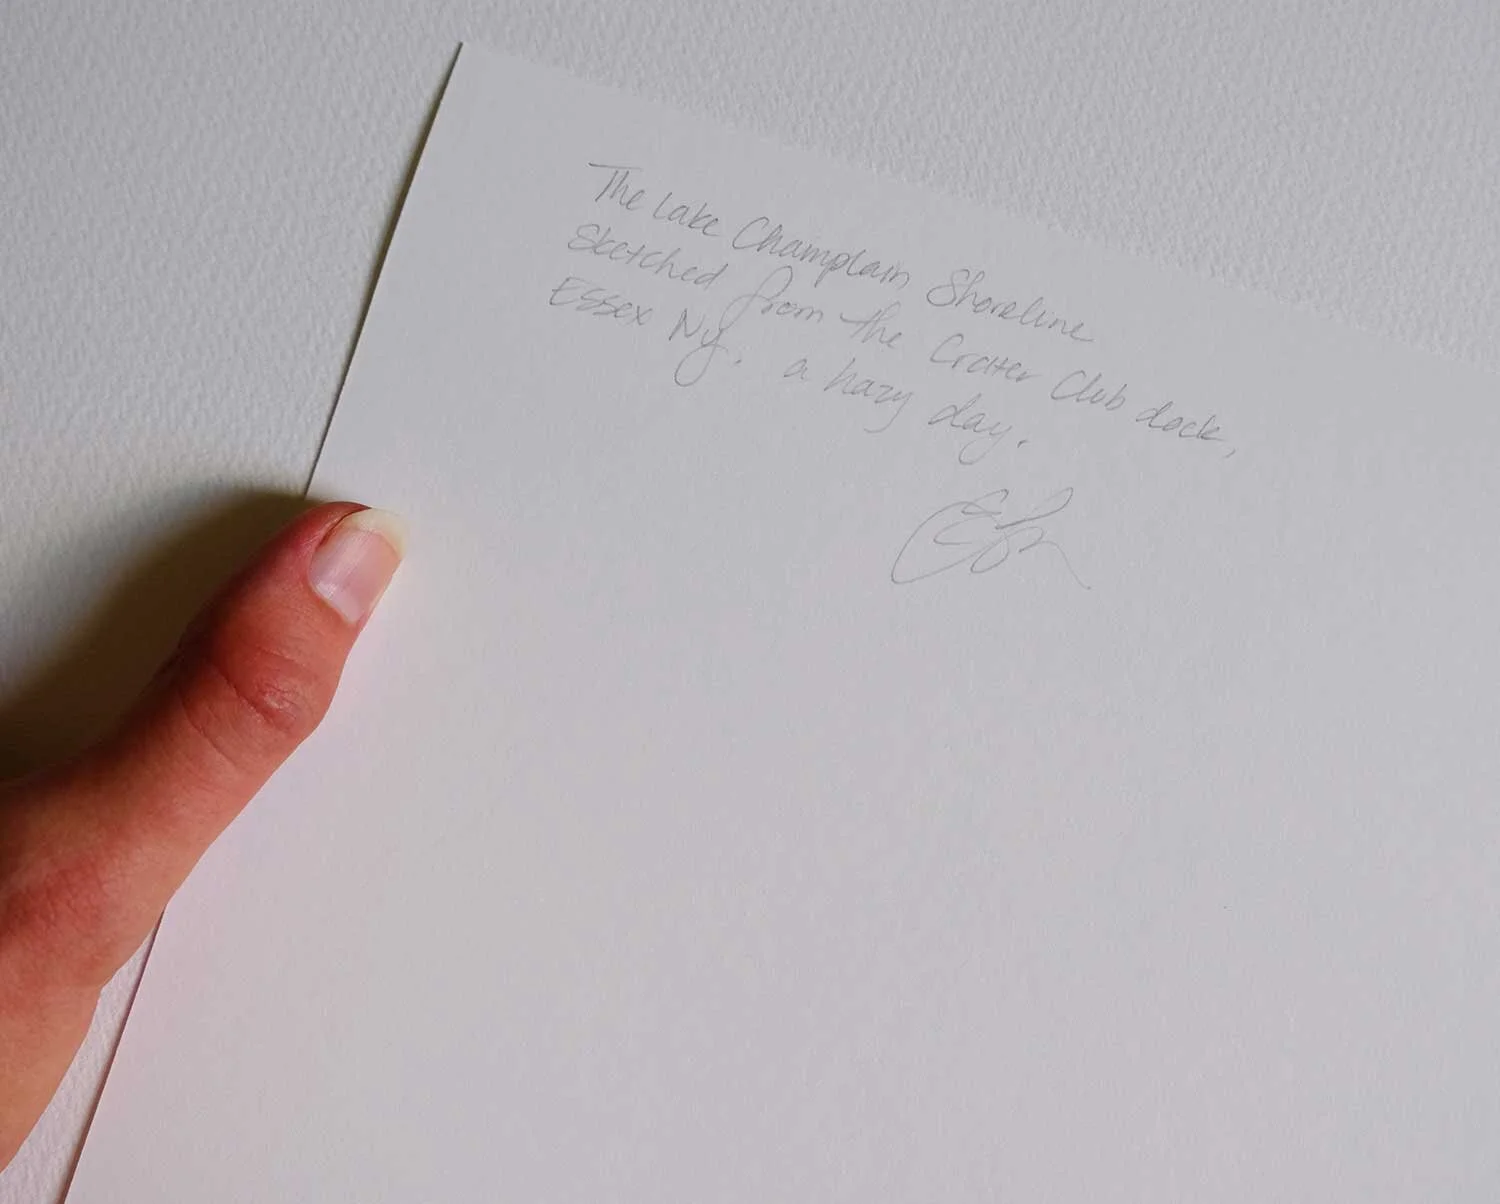 The Lake Champlain Shoreline
Sketched from the Crater Club dock,
Essex NY. a hazy day.